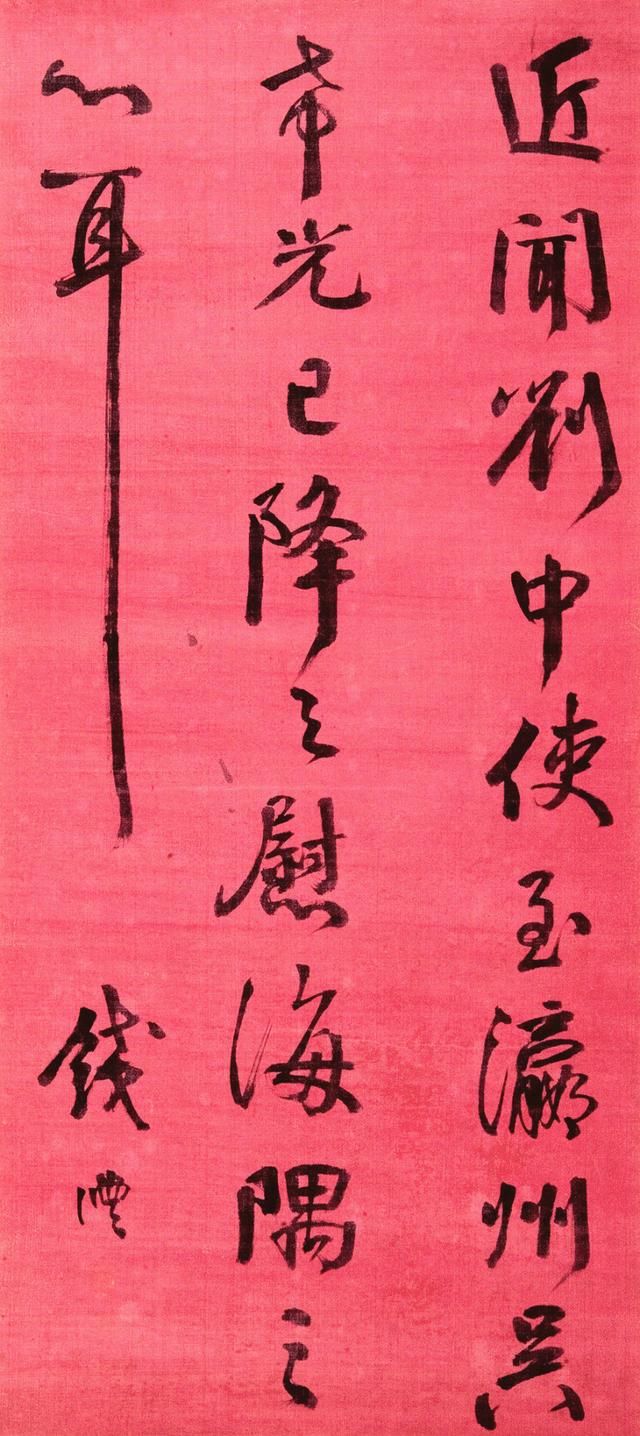 近聞劉中使至瀛州吳
希光已降足慰海隅之
心耳
錢灃